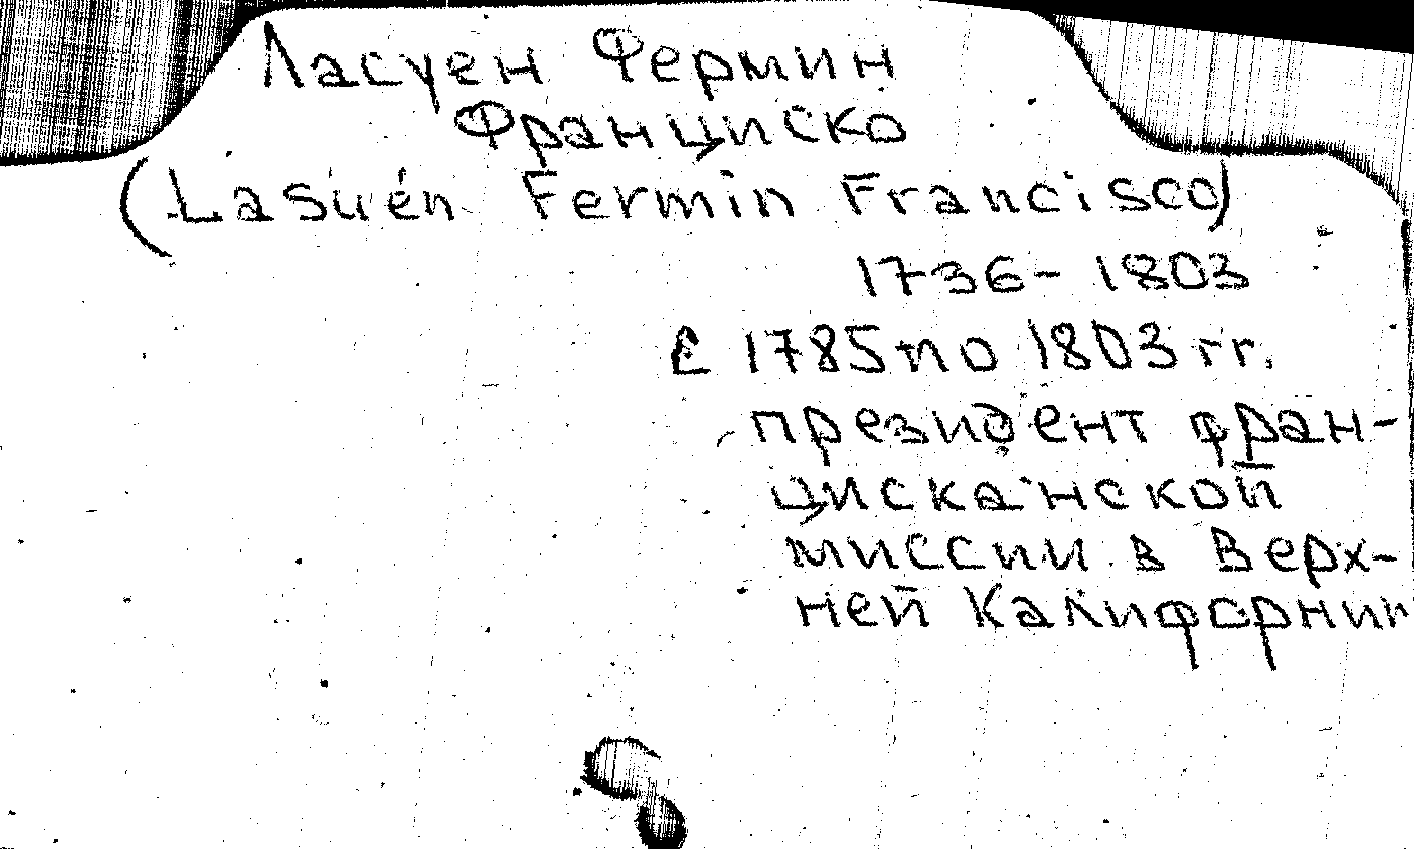 Ласуен Фермин
Франциско
(Lasuén Fermin Francisco)
1736-1803
С 1785 по 1803 гг.
президент фран-
цисканской
миссии в Верх-
ней Калифорнии